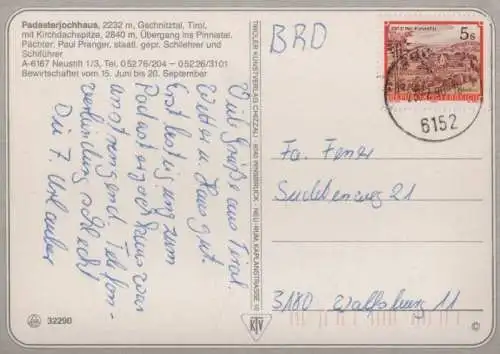 Padasterjochhaus, 2232 m, Gschnitztal, Tirol,
mit Kirchdachspitze, 2840 m, Übergang ins Pinnistal.
Pächter: Paul Pranger, staatl. gepr. Schilehrer und
Schiführer
A-6167 Neustift 1/3, Tel. 05276/204 - 05226/3101
Bewirtschaftet vom 15. Juni bis 20. September
Viele Grüße aus Tirol.
Wetter u. Haus gut.
Erstbesteigung zum
Padasterjochhaus war
anstrengend. Telefon-
verbindung schlecht
Die 7. Urlauber
32290
TIROLER KUNSTVERLAG CHIZZALI · 6040 INNSBRUCK - NEU-RUM, KAPLANSTRASSE
KTV
BRD
5 s
REPUBLIK ÖSTERREICH
6152
Fa.
21
3180 Wolfsburg 11